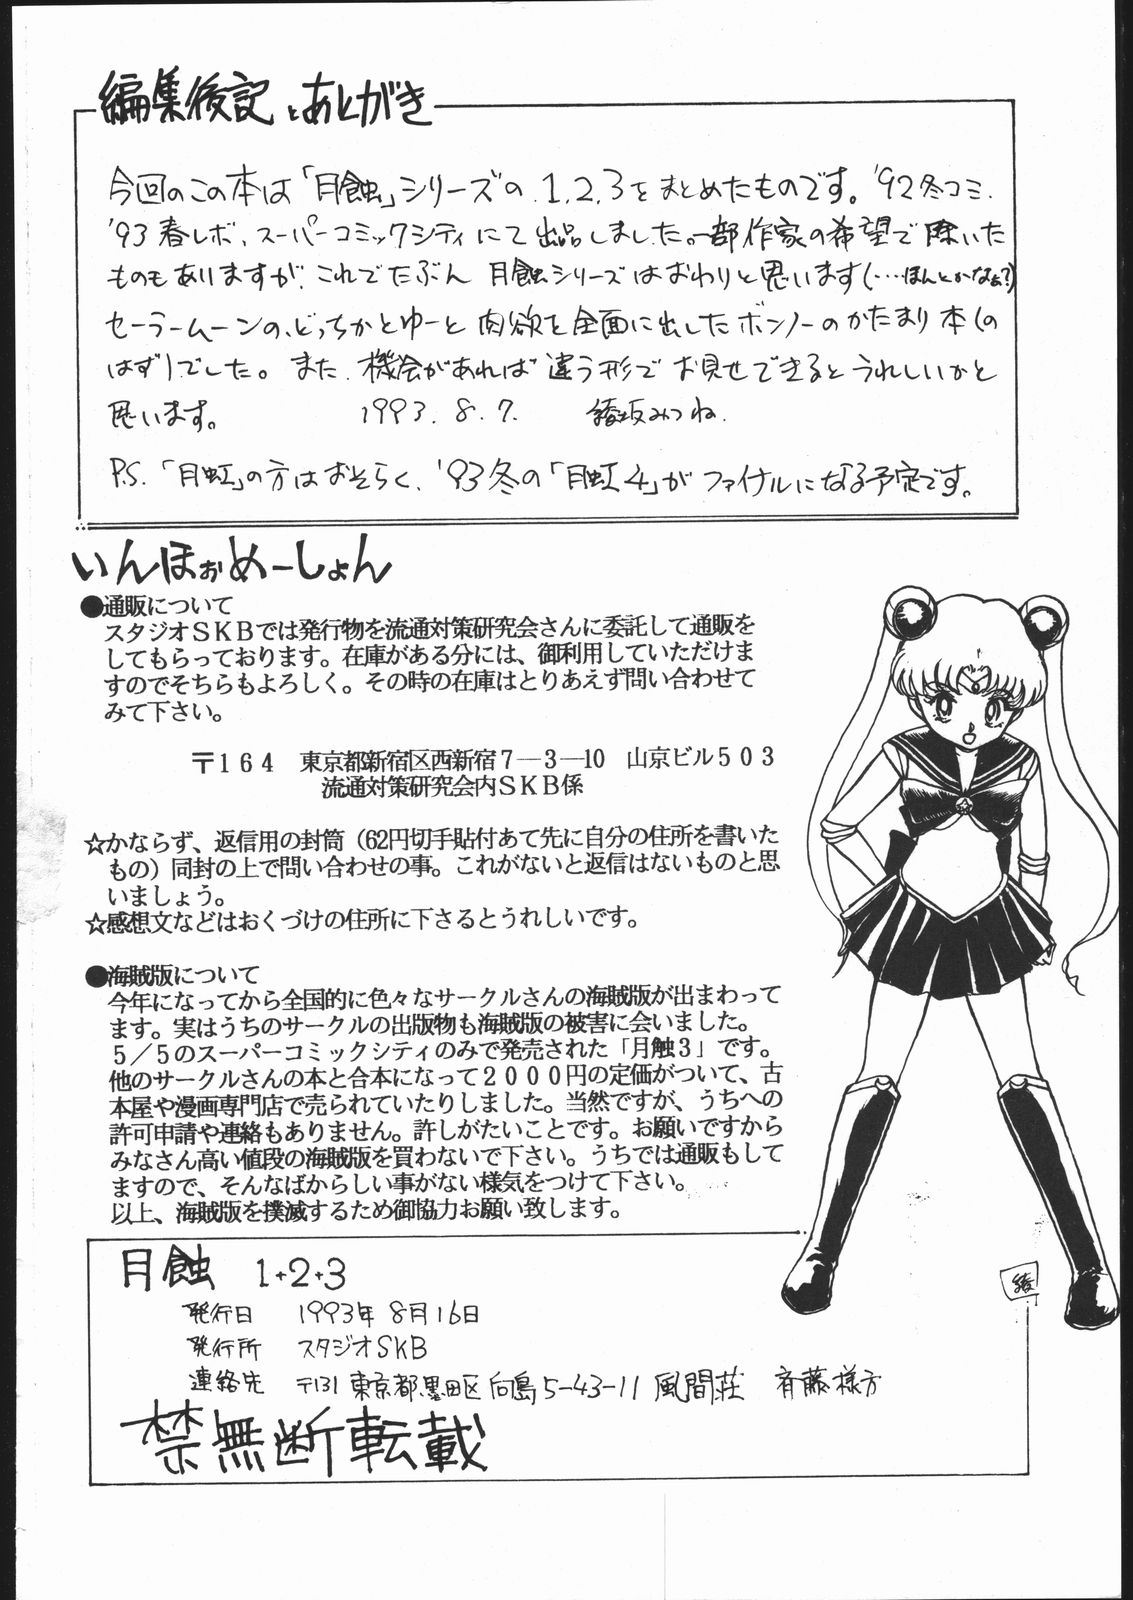 編集後記とあとがき
今回のこの本は「月蝕」シリーズの、1,2,3をまとめたものです。'92冬コミ、
'93春レボ、スーパーコミックシティにて出品しました。一部作家の希望で除いた
ものもありますが、これでたぶん 月蝕シリーズはおわりと思います(…ほんとかなぁ?)
セーラームーンの、どっちかとゆーと肉欲を全面に出したボンノーのかたまり本(の
はず)でした。また、機会があれば違う形でお見せできるとうれしいかと
思います。 1993.8.7. 綾坂みつね.
P.S.「月虹」の方はおそらく、'93冬の「月虹4」がファイナルになる予定です。
いんほぉめーしょん
●通販について
スタジオSKBでは発行物を流通対策研究会さんに委託して通販を
してもらっております。在庫がある分には、御利用していただけま
すのでそちらもよろしく。その時の在庫はとりあえず問い合わせて
みて下さい。
〒164 東京都新宿区西新宿7―3―10 山京ビル503
流通対策研究会内SKB係
☆かならず、返信用の封筒（62円切手貼付あて先に自分の住所を書いた
もの）同封の上で問い合わせの事。これがないと返信はないものと思
いましょう。
☆感想文などはおくづけの住所に下さるとうれしいです。
●海賊版について
今年になってから全国的に色々なサークルさんの海賊版が出まわって
ます。実はうちのサークルの出版物も海賊版の被害に会いました。
5／5のスーパーコミックシティのみで発売された「月触3」です。
他のサークルさんの本と合本になって2000円の定価がついて、古
本屋や漫画専門店で売られていたりしました。当然ですが、うちへの
許可申請や連絡もありません。許しがたいことです。お願いですから
みなさん高い値段の海賊版を買わないで下さい。うちでは通販もして
ますので、そんなばからしい事がない様気をつけて下さい。
以上、海賊版を撲滅するため御協力お願い致します。
綾
月蝕 1+2+3
発行日 1993年8月16日
発行所 スタジオSKB
連絡先 〒131 東京都墨田区向島5-43-11 風間荘 斉藤様方
禁無断転載